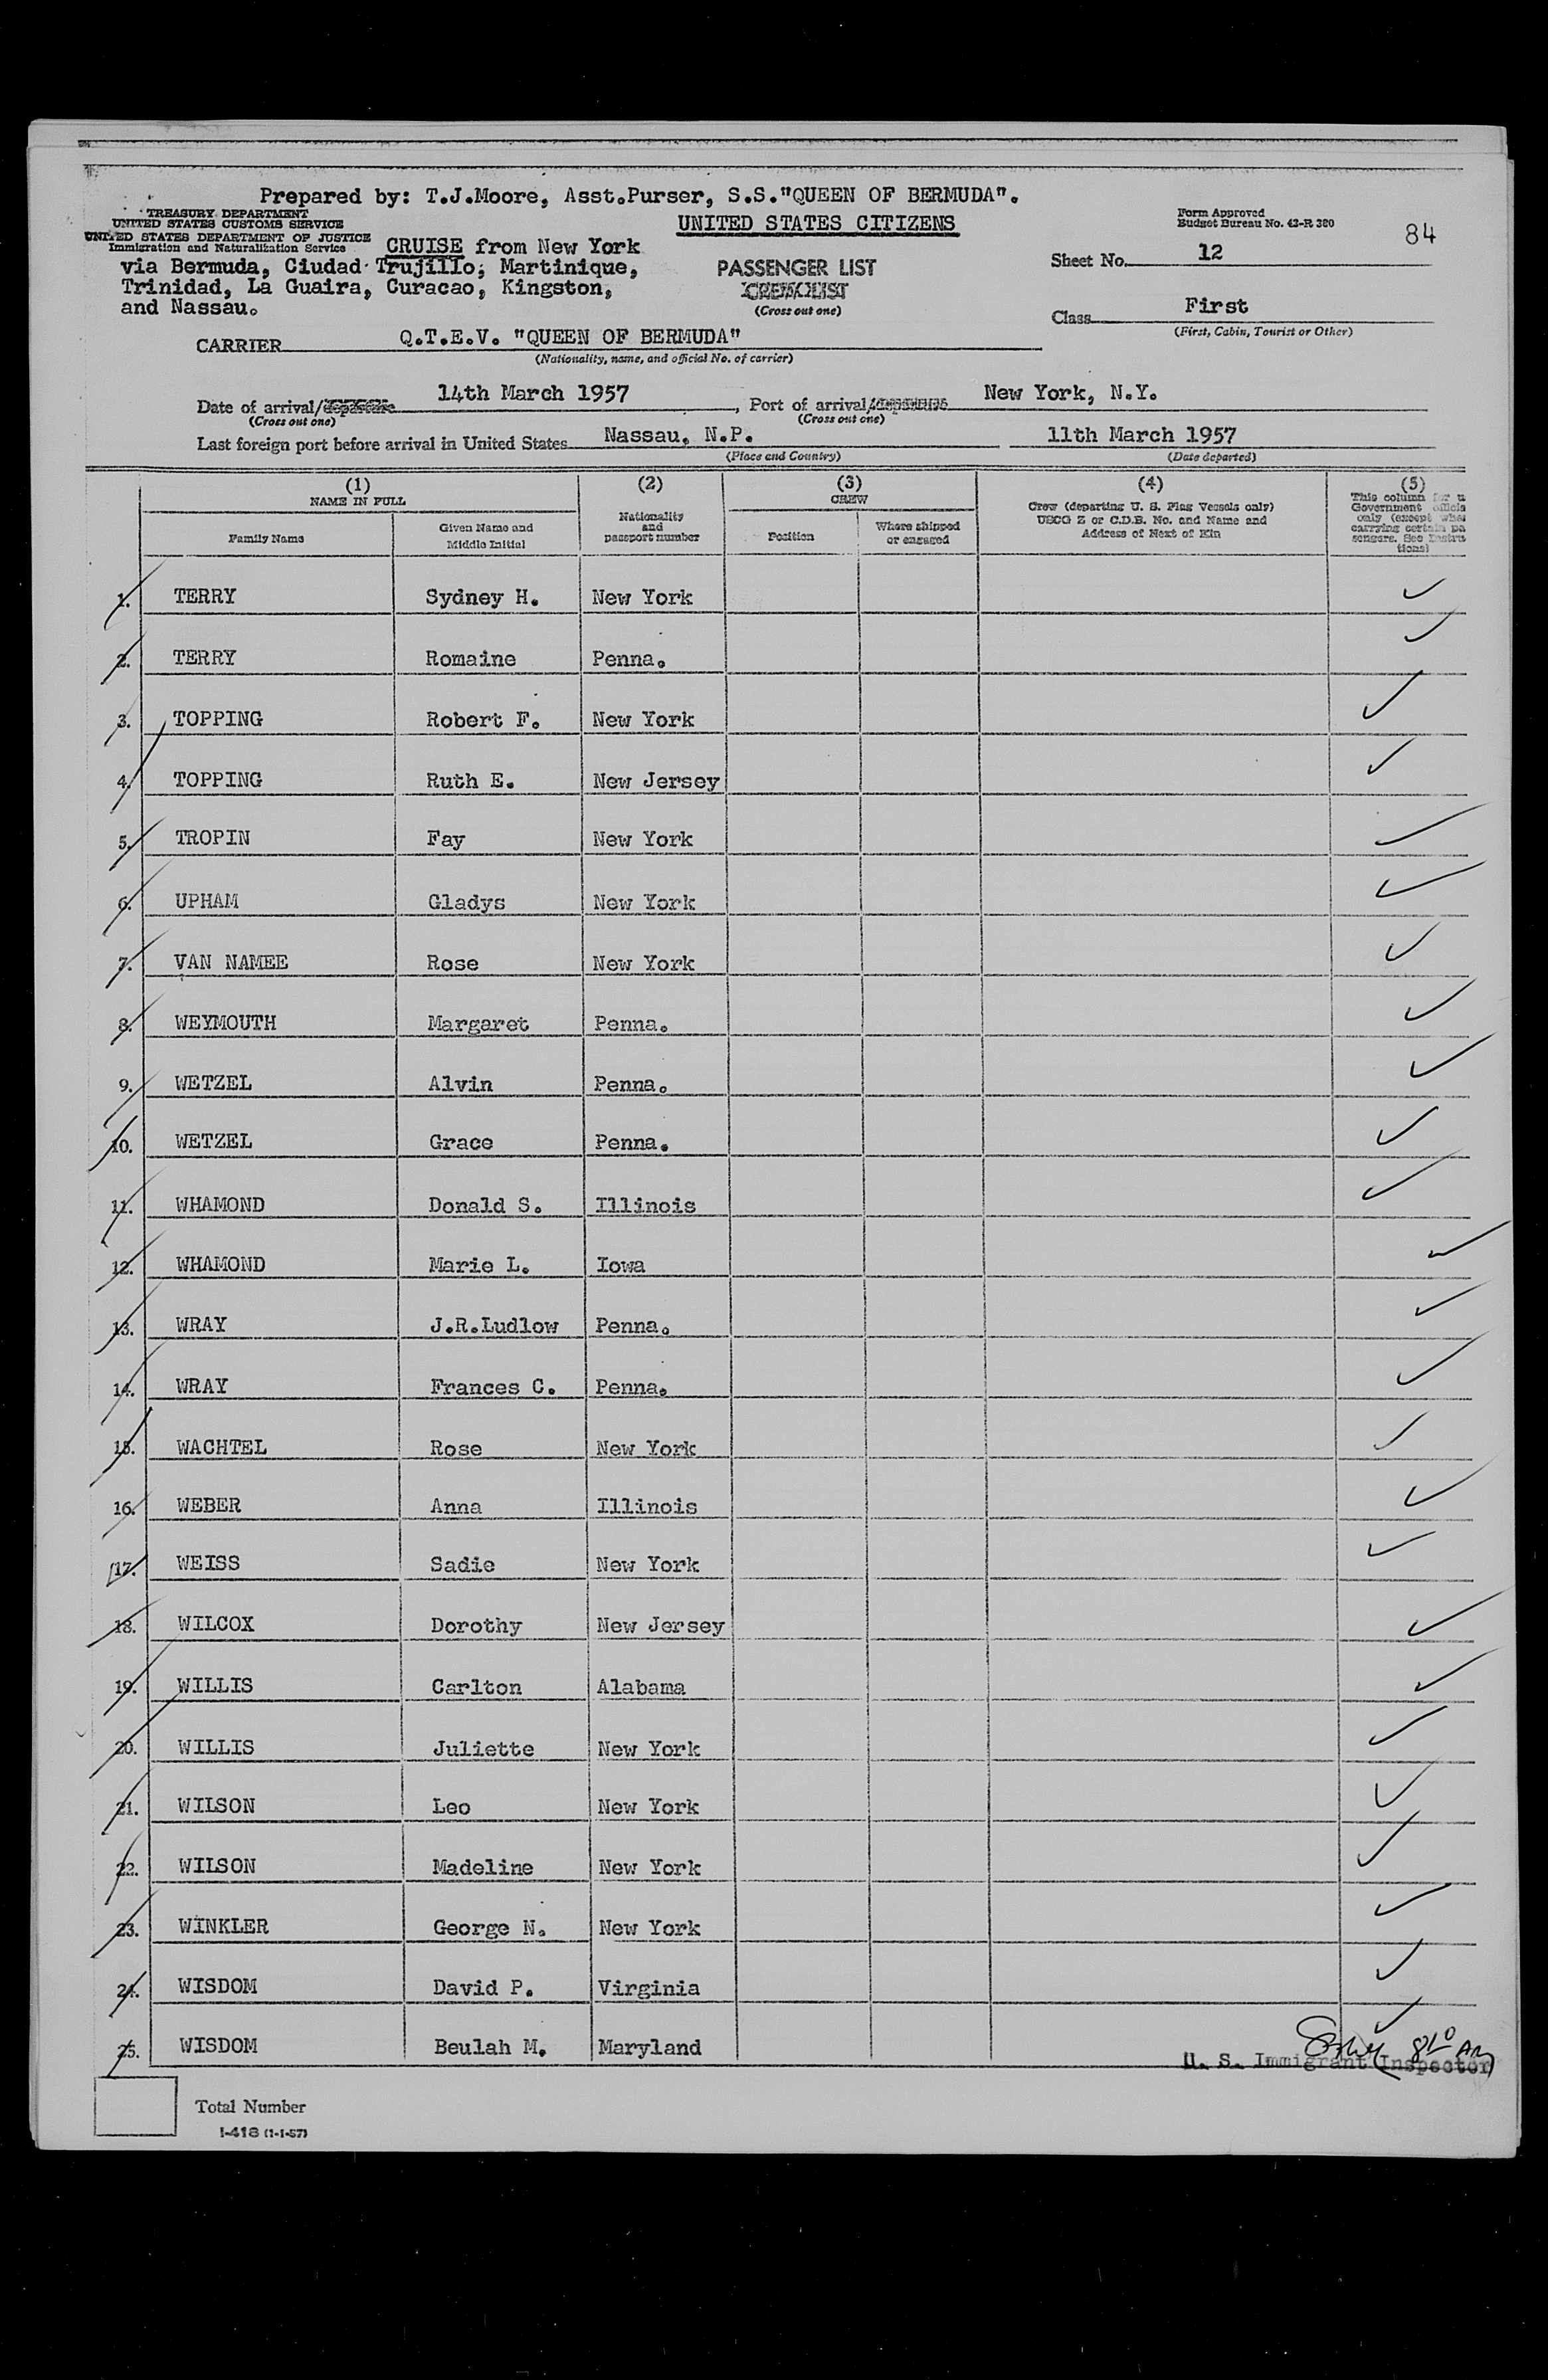 Prepared by: T.J.Moore, Asst.Purser, S.S."QUEEN OF BERMUDA".
TREASURY DEPARTMENT
UNITED STATES CUSTOMS SERVICE
UNITED STATES DEPARTMENT OF JUSTICE
Immigration and Naturalization Service
UNITED STATES CITIZENS
Form Approved
Budget Bureau No. 43-R 380
84
CRUISE from New York
via Bermuda, Ciudad Trujillo, Martinique,
Trinidad, La Guaira, Curacao, Kingston,
and Nassau.
PASSENGER LIST
CREW LIST
(Cross out one)
Sheet No. 12
Class First
(First, Cabin, Tourist or Other)
CARRIER Q.T.E.V. "QUEEN OF BERMUDA"
(Nationality, name, and official No. of carrier)
Date of arrival/departure 14th March 1957, Port of arrival/departure New York, N.Y.
(Cross out one) (Cross out one)
Last foreign port before arrival in United States Nassau, N.P. 11th March 1957
(Place and Country) (Date departed)
(1) (2) (3) (4) (5)
NAME IN FULL
Family Name
Given Name and
Middle Initial
Nationality
and
passport number
CREW
Position
Where shipped
or engaged
Crew (departing U. S. Flag Vessels only)
USCG Z or C.D.B. No. and Name and
Address of Next of Kin
This column for u
Government officia
only (except when
carrying certain pa
sengers. See Instru
tions)
1. TERRY Sydney H. New York
2. TERRY Romaine Penna.
3. TOPPING Robert F. New York
4. TOPPING Ruth E. New Jersey
5. TROPIN Fay New York
6. UPHAM Gladys New York
7. VAN NAMEE Rose New York
8. WEYMOUTH Margaret Penna.
9. WETZEL Alvin Penna.
10. WETZEL Grace Penna.
11. WHAMOND Donald S. Illinois
12. WHAMOND Marie L. Iowa
13. WRAY J.R.Ludlow Penna.
14. WRAY Frances C. Penna.
15. WACHTEL Rose New York
16. WEBER Anna Illinois
17. WEISS Sadie New York
18. WILCOX Dorothy New Jersey
19. WILLIS Carlton Alabama
20. WILLIS Juliette New York
21. WILSON Leo New York
22. WILSON Madeline New York
23. WINKLER George N. New York
24. WISDOM David P. Virginia
25. WISDOM Beulah M. Maryland
U. S. Immigrant Inspector
Total Number
I-418 (1-1-57)